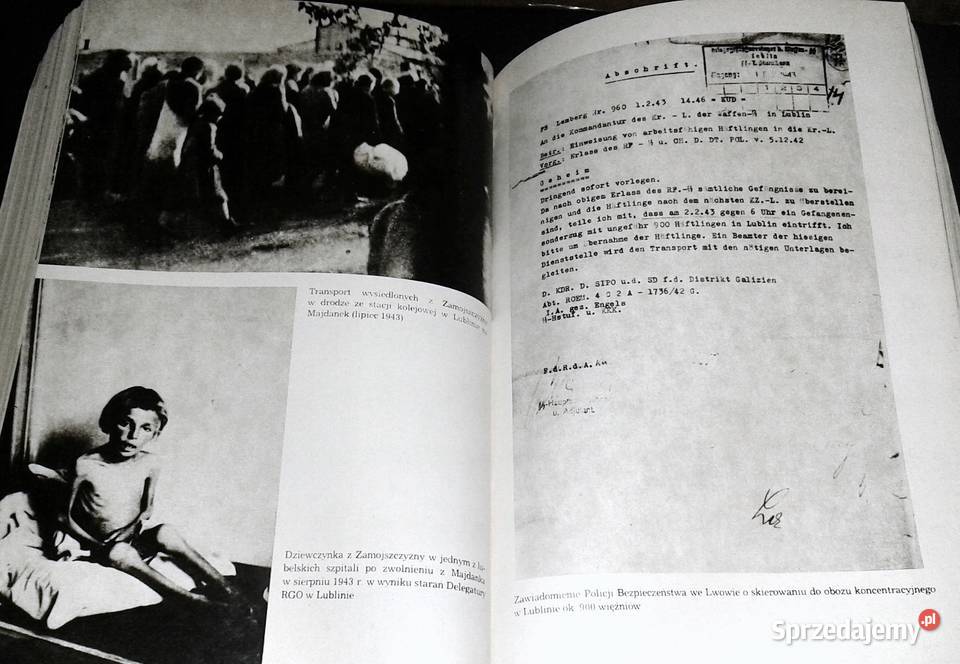 Transport wysiedlonych z Zamojszczyzny
w drodze ze stacji kolejowej w Lublinie na
Majdanek (lipiec 1943)
Dziewczynka z Zamojszczyzny w jednym z lu-
belskich szpitali po zwolnieniu z Majdanka
w sierpniu 1943 r. w wyniku starań Delegatury
RGO w Lublinie
Abschrift.
Lublin
1 2 4
FS Lemberg Nr. 960 1.2.43 14.46 = KUD =
An die Kommandantur des Kr. - L. der Waffen-SS in Lublin
Betr.: Einweisung von arbeitsfähigen Häftlingen in die Kr.-L.
Vorg.: Erlass des RF - SS u. CH. D. DT. POL. v. 5.12.42
Geheim
Dringend sofort vorlegen.
Da nach obigem Erlass des RF.-SS sämtliche Gefängnisse zu berei-
nigen und die Häftlinge nach dem nächsten KZ.-L. zu überstellen
sind, teile ich mit, dass am 2.2.43 gegen 6 Uhr ein Gefangenen-
sonderzug mit ungefähr 900 Häftlingen in Lublin eintrifft. Ich
bitte um Übernahme der Häftlinge. Ein Beamter der hiesigen
Dienststelle wird den Transport mit den nötigen Unterlagen be-
gleiten.
D. KDR. D. SIPO u.d. SD f.d. Distrikt Galizien
Abt. ROEM. 4 C 2 A - 1736/42 G.
I.A. gez. Engels
SS-Hstuf. u. KRK.
F.d.R.d.A.
u. Adjutant
Zawiadomienie Policji Bezpieczeństwa we Lwowie o skierowaniu do obozu koncentracyjnego
w Lublinie ok. 900 więźniów
Sprzedajemy.pl